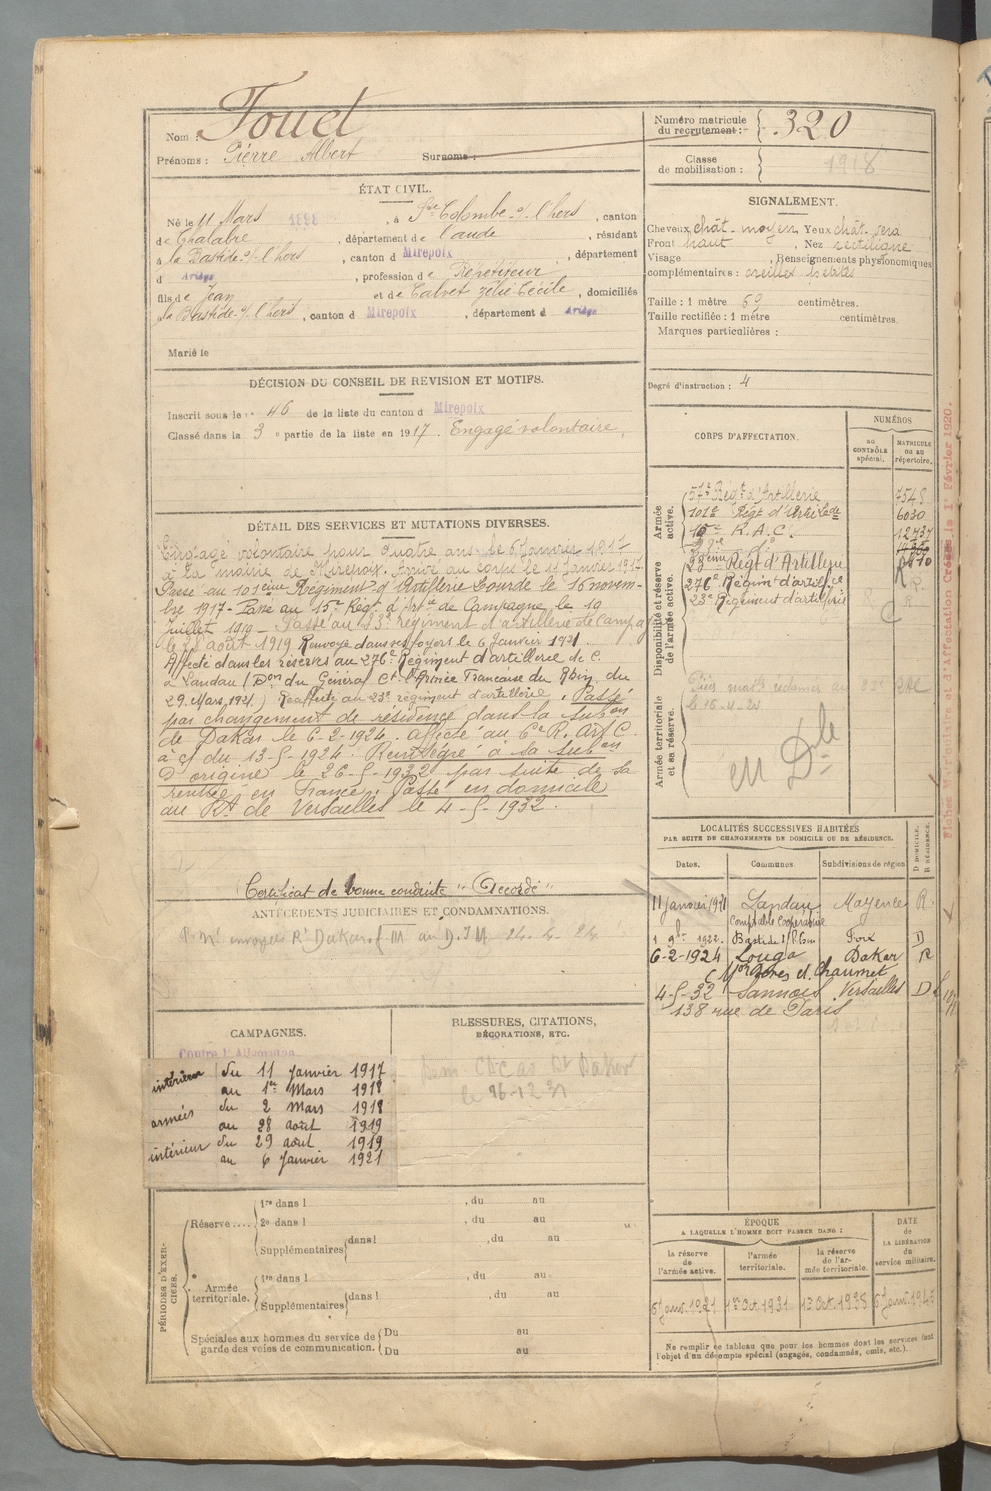 Nom : Fouet
Prénoms : Pierre Albert Surnoms :
Numéro matricule du recrutement : 320
Classe de mobilisation : 1918
ÉTAT CIVIL.
Né le 11 Mars 1898, à Ste Colombe s/ l'hers, canton
de Chalabre, département de l'aude, résidant
à la Bastide s/ l'hers, canton d Mirepoix, département
d Ariège, profession de Répétiteur
fils de Jean et de Calvet Zélie Cécile, domiciliés
à la Bastide s/ l'hers, canton d Mirepoix, département d Ariège
Marié le
SIGNALEMENT.
Cheveux chât. moyen Yeux chât.
Front haut, Nez rectiligne
Visage, Renseignements physionomiques
complémentaires : oreilles petites
Taille : 1 mètre 69 centimètres.
Taille rectifiée : 1 mètre centimètres.
Marques particulières :
Degré d'instruction : 4
DÉCISION DU CONSEIL DE REVISION ET MOTIFS.
Inscrit sous le n° 46 de la liste du canton d Mirepoix
Classé dans la 3e partie de la liste en 1917. Engagé volontaire.
DÉTAIL DES SERVICES ET MUTATIONS DIVERSES.
Engagé volontaire pour quatre ans le 6 Janvier 1917
à la mairie de Mirepoix. Arrivé au corps le 11 Janvier 1917.
Passé au 101ème Régiment d'Artillerie Lourde le 16 novem-
bre 1917 - Passé au 15e Régt. d'Artie de Campagne le 19
Juillet 1919 - Passé au 23e régiment d'artillerie de Campag
le 28 août 1919 Renvoyé dans ses foyers le 6 Janvier 1921.
Affecté dans les réserves au 276e Régiment d'artillerie de C.
à Landau (Don du Général Ct l'Armée Française du Rhin du
29 Mars 1921.) Réaffecté au 23e régiment d'artillerie. Passé
par changement de résidence dans la subon
de Dakar le 6-2-1924. affecté au 6e R. Art. C.
à c/ du 13-5-1924. Réintégré à sa subon
d'origine le 26-5-1932 par suite de sa
rentrée en France. Passé en domicile
au Rt de Versailles le 4-5-1932.
Certificat de bonne conduite "Accordé"
ANTÉCÉDENTS JUDICIAIRES ET CONDAMNATIONS.
CORPS D'AFFECTATION.
NUMÉROS
AU CONTRÔLE spécial.
MATRICULE ou au répertoire.
Armée active.
57e Régt d'Artillerie 7548
101e Régt d'Artie Lde 6030
15e R. A. C. 12437
23ème Régt d'Artillerie
Disponibilité et réserve de l'armée active.
276e Régim d'artillie
23e Régiment d'artillerie
Armée territoriale et sa réserve.
le 16-4-24
en Dle
LOCALITÉS SUCCESSIVES HABITÉES
PAR SUITE DE CHANGEMENTS DE DOMICILE OU DE RÉSIDENCE.
Dates. Communes. Subdivisions de région D DOMICILE. R RÉSIDENCE.
11 Janvier 1921 Landau Mayence R.
Comptable coopérative
1 9bre 1922. Bastide s/ l'hers Foix D
6-2-1924 Louga Dakar R
C Mon et Chaumet
4-5-32 Sannois Versailles D
138 rue de Paris
CAMPAGNES.
Contre l'Allemagne
intérieur du 11 Janvier 1917
au 1er Mars 1918
armées du 2 Mars 1918
au 28 août 1919
intérieur du 29 août 1919
au 6 Janvier 1921
BLESSURES, CITATIONS, DÉCORATIONS, ETC.
PÉRIODES D'EXERCICES.
Réserve.... 1re dans l , du au
2e dans l , du au
Supplémentaires dans l , du au
Armée territoriale. 1re dans l , du au
Supplémentaires dans l , du au
Spéciales aux hommes du service de garde des voies de communication. Du au
Du au
ÉPOQUE
A LAQUELLE L'HOMME DOIT PASSER DANS :
DATE de LA LIBÉRATION du service militaire.
la réserve de l'armée active. l'armée territoriale. la réserve de l'armée territoriale.
6 Janv. 1921 1er Oct. 1931
Ne remplir ce tableau que pour les hommes dont les services font
l'objet d'un décompte spécial (engagés, condamnés, omis, etc.).
Fiches Matricule et d'Affectation Créées le 1er Février 1920.